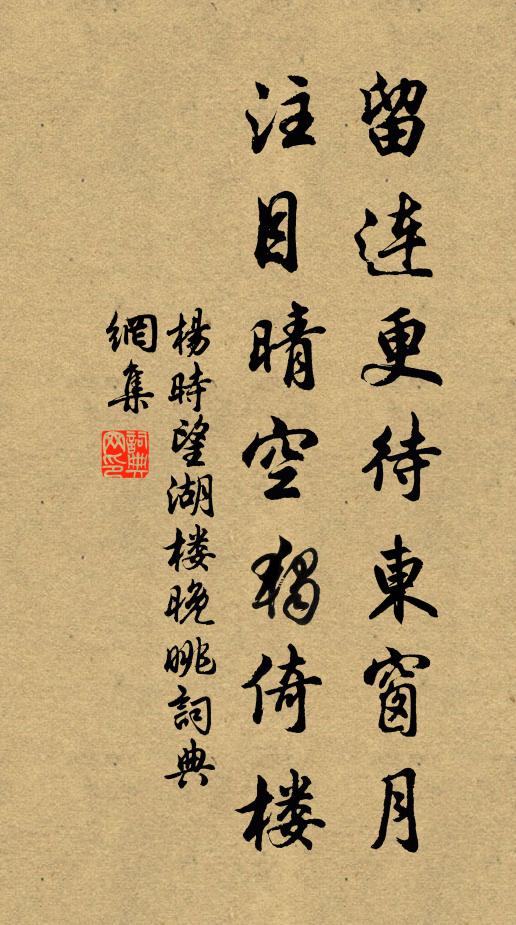 留连更待東窗月
注目晴空独倚楼
楊時望湖楼晚眺詞典
網集
詞典
网印